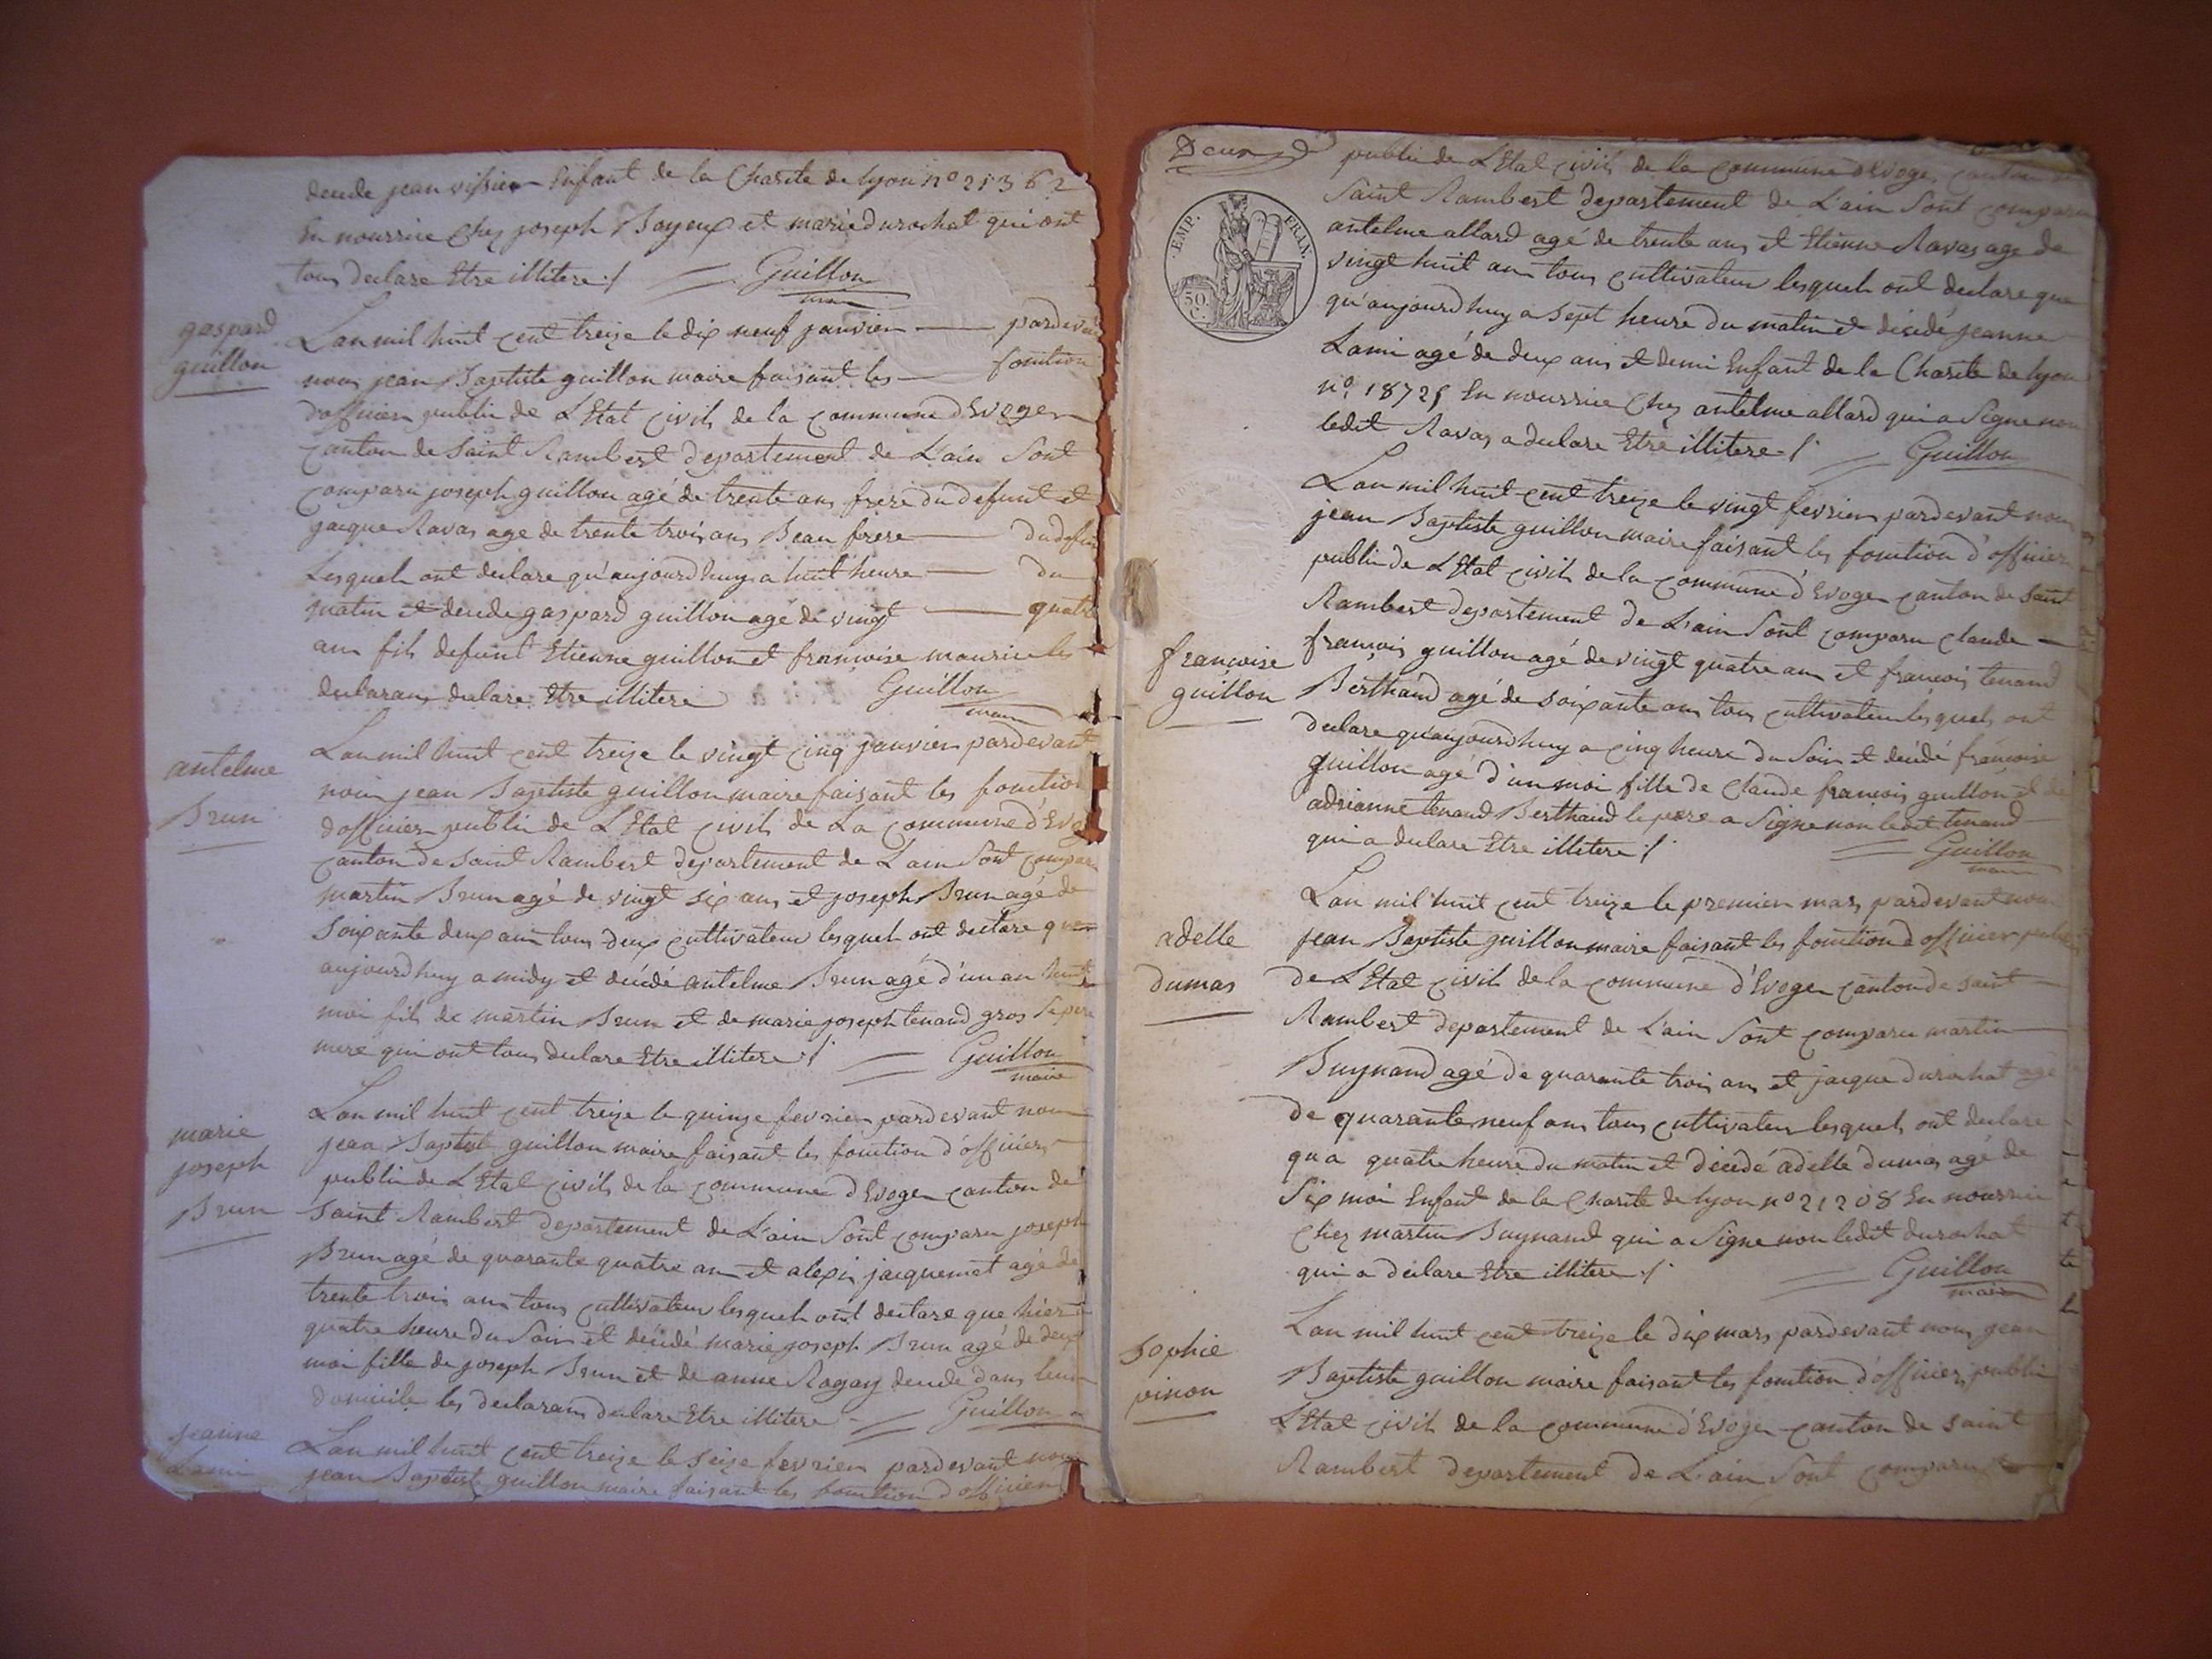 decede jean vissier Enfant de la Charite de lyon n° 21362
En nourrice chez joseph Boyeux et marie durochat qui ont
tous declare Etre illitere ./ Guillon
maire
gaspard
guillon
Lan mil huit cent treize le dix neuf janvier — pardevan
nous jean Baptiste guillon maire faisant les — fonction
d'officier public de L'Etat civil de la commune d'Evoge
canton de Saint Rambert departement de L'ain Sont
comparu joseph guillon agé de trente ans frere du defunt et
jacque Ravas age de trente trois ans Beau frere — du defun
Lesquels ont declare qu'aujourd'huy a huit heure — du
matin et decede gaspard guillon agé de vingt — quatre
ans fils defunt Etienne guillon et francoise maurice les
declarans declare Etre illitere Guillon
maire
antelme
Brun
Lan mil huit cent treize le vingt cinq janvier pardevant
nous jean Baptiste guillon maire faisant les fonction
d'officier public de L'Etat civil de La commune d'Evog
canton de Saint Rambert departement de L'ain Sont compar
martin Brun agé de vingt six ans et joseph Brun agé de
Soixante deux ans tous deux cultivateur lesquels ont declare que
aujourd'huy a midy et décédé antelme Brun agé d'un an huit
moi fils de martin Brun et de marie joseph tenand gros Le pere
mere qui ont tous declare Etre illitere ./ Guillon
maire
marie
joseph
Brun
Lan mil huit cent treize le quinze fevrier pardevant nous
jean Baptist guillon maire faisant les fonction d'officier
public de L'Etat civil de la commune d'Evoge canton de
Saint Rambert departement de L'ain Sont comparu joseph
Brun agé de quarante quatre ans et alexis jacquemet agé de
trente trois ans tous cultivateur lesquels ont declare que hier a
quatre heure du Soir et décédé marie joseph Brun agé de deux
moi fille de joseph Brun et de anne Ragay decede dans leur
domicile les declarans declare Etre illitere Guillon
jeanne
Lami
Lan mil huit cent treize le seize fevrier pardevant nous
jean Baptist guillon maire faisant les fonction d'officier
Deux
EMP. FRAN.
50
C.
public de L'Etat civil de la commune d'Evoge canton de
Saint Rambert departement de L'ain Sont comparu
antelme allard agé de trente ans et Etienne Ravas age de
vingt huit ans tous cultivateur lesquels ont declare que
qu'aujourd'huy a Sept heure du matin et décédé jeanne
Lami agé de deux ans et demi Enfant de la Charite de lyon
n° 18725 En nourrice Chez antelme allard qui a Signe non
ledit Ravas a declare Etre illitere ./ Guillon
francoise
guillon
Lan mil huit cent treize le vingt fevrier pardevant nous
jean Baptiste guillon maire faisant les fonction d'officier
public de L'Etat civil de la commune d'Evoge canton de Saint
Rambert departement de L'ain Sont comparu claude —
francois guillon agé de vingt quatre ans et francois tenand
Berthaud agé de soixante ans tous cultivateur lesquels ont
declare qu'aujourd'huy a cinq heure du Soir et décédé francoise
guillon agé d'un moi fille de Claude francois guillon et de
adrianne tenand Berthaud le pere a Signe non ledit tenand
qui a declare Etre illitere ./ Guillon
maire
adelle
dumas
Lan mil huit cent treize le premier mars pardevant nous
jean Baptiste guillon maire faisant les fonction d'officier public
de L'Etat civil de la commune d'Evoge canton de saint —
Rambert departement de L'ain Sont comparu martin
Buynand agé de quarante trois ans et jacque durochat agé
de quarante neuf ans tous cultivateur lesquels ont declare
qu'a quatre heure du matin et décédé adelle dumas agé de
Six moi Enfant de la Charite de lyon n° 21208 En nourrice
Chez martin Buynand qui a Signe non ledit durochat
qui a declare Etre illitere ./ Guillon
maire
Sophie
pinon
Lan mil huit cent treize le dix mars pardevant nous jean
Baptiste guillon maire faisant les fonction d'officier public
L'Etat civil de la commune d'Evoge canton de saint
Rambert departement de L'ain Sont comparu